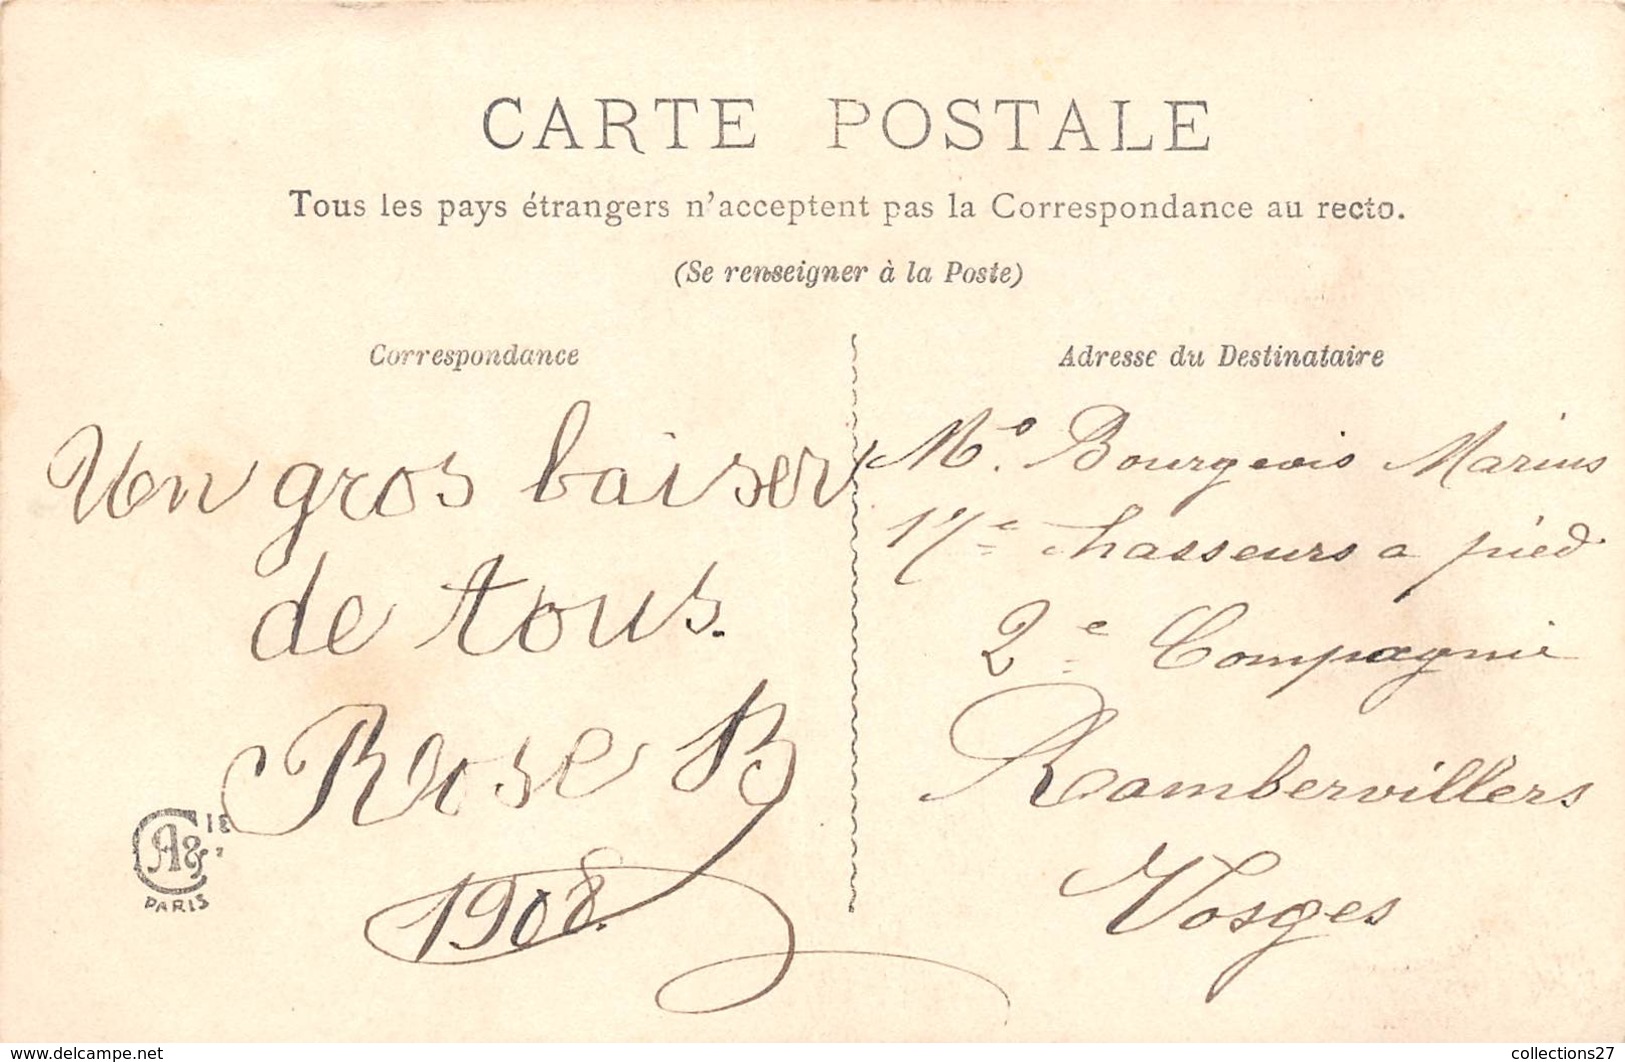 CARTE POSTALE
Tous les pays étrangers n'acceptent pas la Correspondance au recto.
(Se renseigner à la Poste)
Correspondance
Un gros baiser
de tous.
Rose B
1908.
A & Cie
PARIS
Adresse du Destinataire
Mr. Bourgeois Marius
17e chasseurs a pied
2e Compagnie
Rambervillers
Vosges
www.delcampe.net
collections27